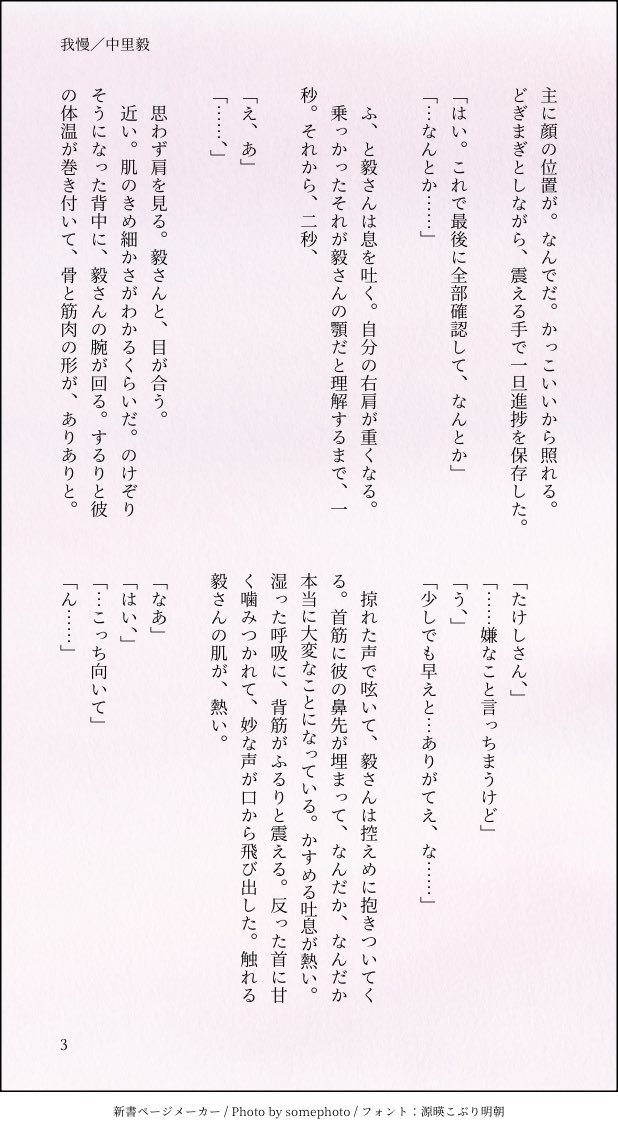 我慢／中里毅
主に顔の位置が。なんでだ。かっこいいから照れる。
どぎまぎとしながら、震える手で一旦進捗を保存した。
「はい。これで最後に全部確認して、なんとか」
「…なんとか……」
ふ、と毅さんは息を吐く。自分の右肩が重くなる。
乗っかったそれが毅さんの顎だと理解するまで、一
秒。それから、二秒、
「え、あ」
「……、」
思わず肩を見る。毅さんと、目が合う。
近い。肌のきめ細かさがわかるくらいだ。のけぞり
そうになった背中に、毅さんの腕が回る。するりと彼
の体温が巻き付いて、骨と筋肉の形が、ありありと。
「たけしさん、」
「……嫌なこと言っちまうけど」
「う、」
「少しでも早えと…ありがてえ、な……」
掠れた声で呟いて、毅さんは控えめに抱きついてく
る。首筋に彼の鼻先が埋まって、なんだか、なんだか
本当に大変なことになっている。かすめる吐息が熱い。
湿った呼吸に、背筋がふるりと震える。反った首に甘
く噛みつかれて、妙な声が口から飛び出した。触れる
毅さんの肌が、熱い。
「なあ」
「はい、」
「…こっち向いて」
「ん……」
3
新書ページメーカー / Photo by somephoto / フォント：源暎こぶり明朝